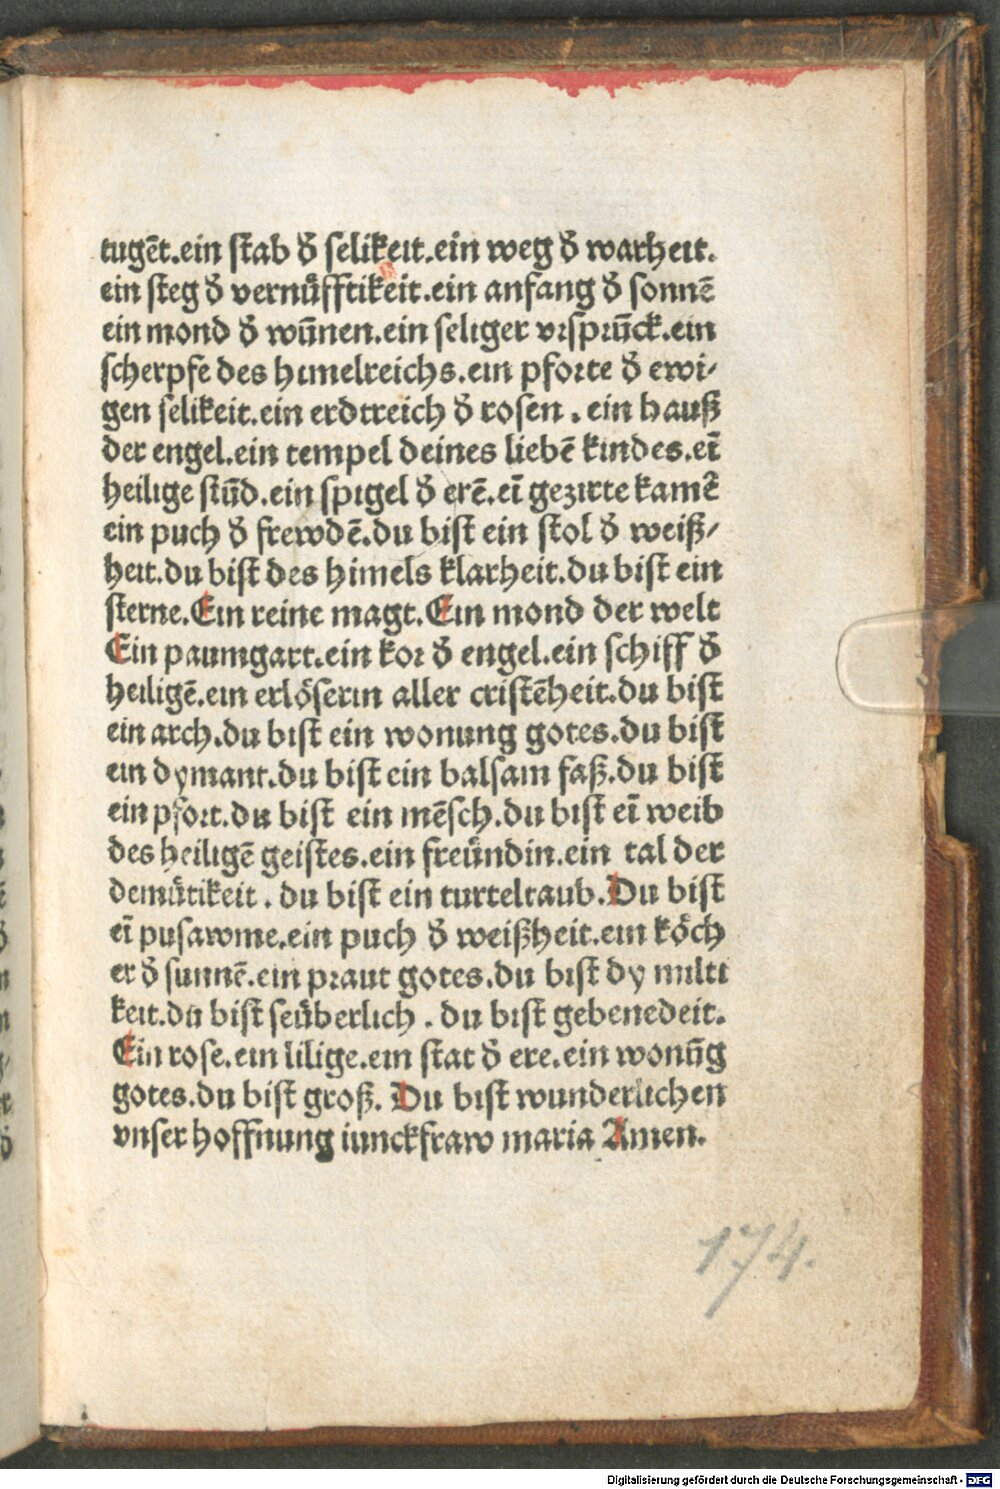 tugēt.ein stab đ selikeit.ein weg đ warheit.
ein steg đ vernüfftikeit.ein anfang đ sonnē
ein mond đ wūnen.ein seliger vrsprūck.ein
scherpfe des himelreichs.ein pforte đ ewi⸗
gen selikeit.ein erdtreich đ rosen.ein hauß
der engel.ein tempel deines liebē kindes.eī
heilige stūd.ein spigel đ erē.eī gezirte kamē
ein puch đ frewdē.du bist ein stol đ weiß⸗
heit.du bist des himels klarheit.du bist ein
sterne.Ein reine magt.Ein mond der welt
Ein paumgart.ein kor đ engel.ein schiff đ
heiligē.ein erlöserin aller cristēheit.du bist
ein arch.du bist ein wonung gotes.du bist
ein dymant.du bist ein balsam faß.du bist
ein pfort.du bist ein mēsch.du bist eī weib
des heiligē geistes.ein freündin.ein tal der
demütikeit.du bist ein turteltaub.Du bist
eī pusawme.ein puch đ weißheit.ein köch
er đ sunnē.ein praut gotes.du bist dy milti
keit.du bist seüberlich.du bist gebenedeit.
Ein rose.ein lilige.ein stat đ ere.ein wonūg
gotes.du bist groß. Du bist wunderlichen
vnser hoffnung iunckfraw maria Amen.
174.
Digitalisierung gefördert durch die Deutsche Forschungsgemeinschaft - DFG